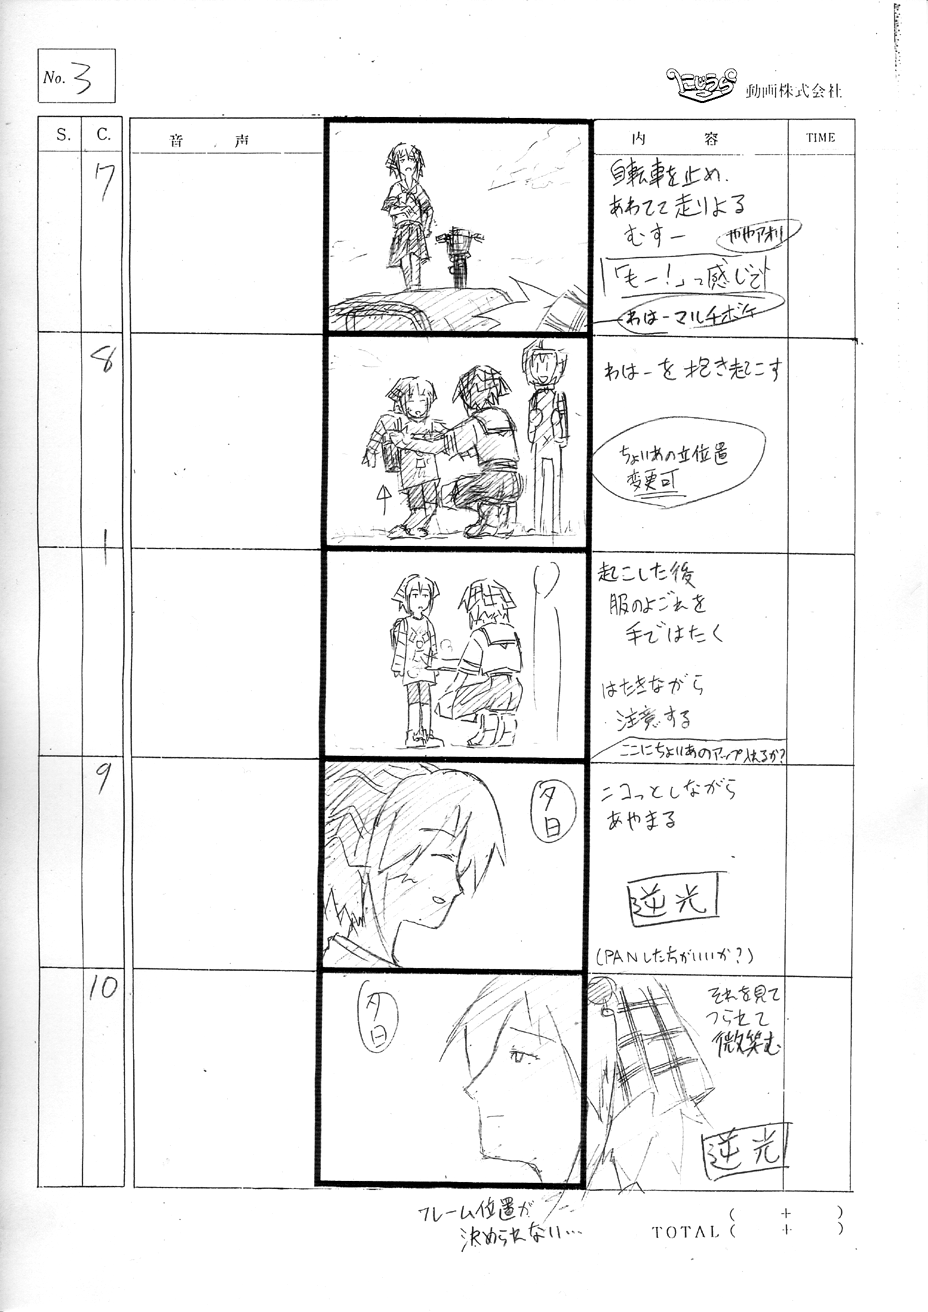 No. 3
にじうら 動画株式会社
S. C. 音 声 内 容 TIME
7
自転車を止め、
あわてて走りよる
むすー
ややアオリ
「もー!」って感じで
わはーマルチボケ
8
わはーを抱き起こす
ちょいあの立位置
変更可
起こした後
服のよごれを
手ではたく
はたきながら
注意する
ここにちょいあのアップ入れるか?
9
夕日
ニコっとしながら
あやまる
逆光
(PANした方がいいか?)
10
夕日
それを見て
つられて
微笑む
逆光
フレーム位置が
決められない…
TOTAL ( + )
( + )